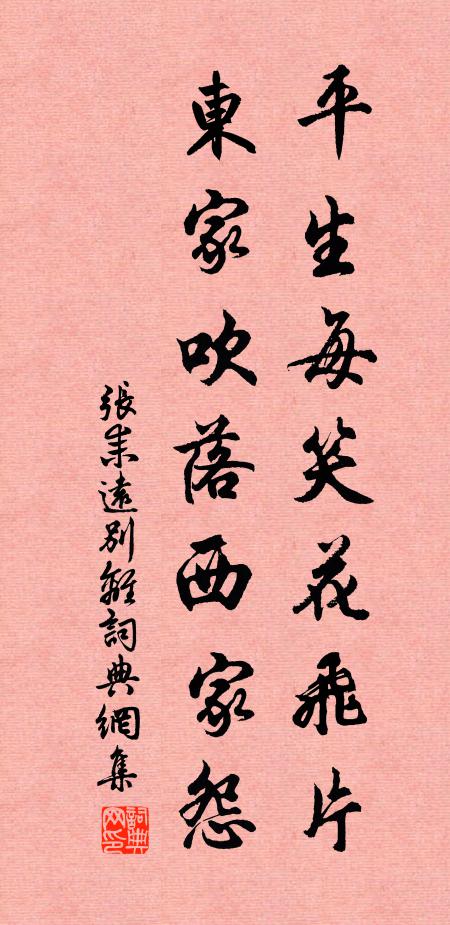 平生每笑花飛片
東家吹落西家怨
張耒遠別離詞典網集
詞典网印